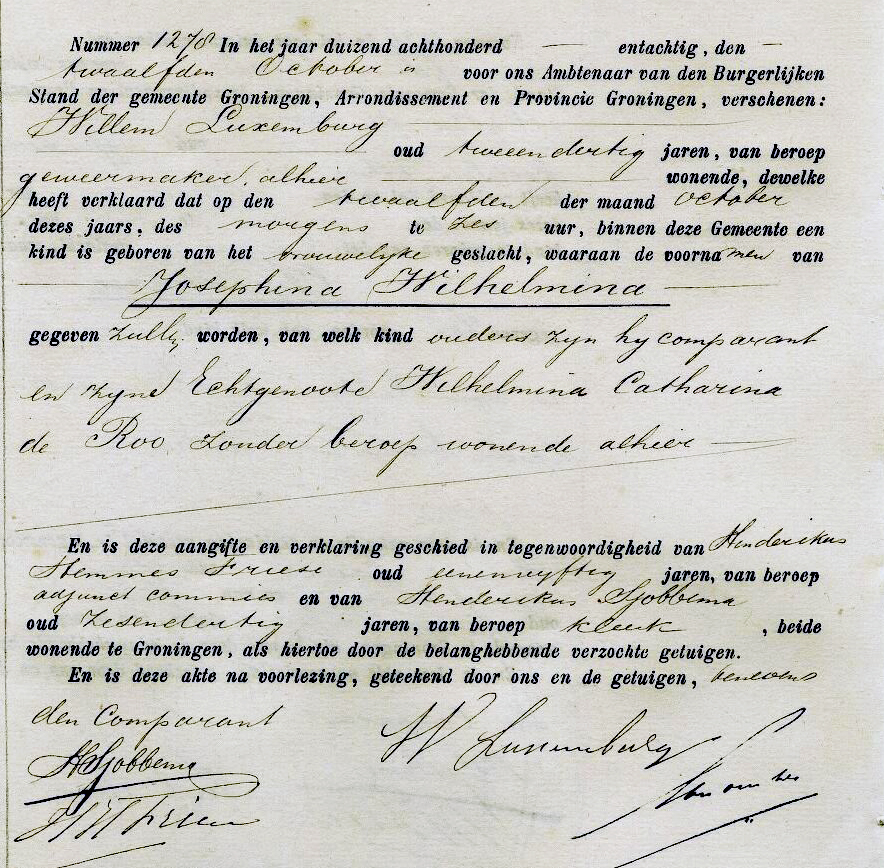 Nummer 1278 In het jaar duizend achthonderd — entachtig, den —
twaalfden October is voor ons Ambtenaar van den Burgerlijken
Stand der gemeente Groningen, Arrondissement en Provincie Groningen, verschenen:
Willem Luxemburg
oud tweeendertig jaren, van beroep
geweermaker, alhier wonende, dewelke
heeft verklaard dat op den twaalfden der maand October
dezes jaars, des morgens te zes uur, binnen deze Gemeente een
kind is geboren van het vrouwelijke geslacht, waaraan de voornamen van
Josephina Wilhelmina
gegeven zullen worden, van welk kind ouders zyn hy comparant
en zyne Echtgenoote Wilhelmina Catharina
de Roo zonder beroep wonende alhier
En is deze aangifte en verklaring geschied in tegenwoordigheid van Henderikus
Hemmes Friese oud eenenvyftig jaren, van beroep
adjunct commies en van Henderikus Sjobbema
oud zesendertig jaren, van beroep klerk, beide
wonende te Groningen, als hiertoe door de belanghebbende verzochte getuigen.
En is deze akte na voorlezing, geteekend door ons en de getuigen, benevens
den Comparant
HSjobbema W Luxemburg
HHFriese